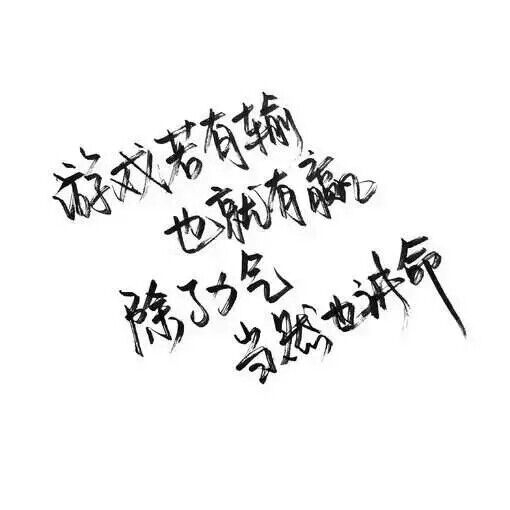 游戏若有输
也就有赢
除了力气
当然也讲命